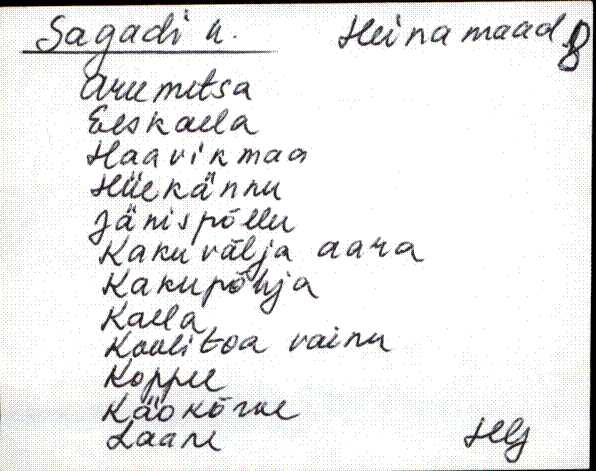 Sagadi k. Heinamaad 8
Arumetsa
Eeskaela
Haavikmaa
Hüekännu
Jänispõllu
Kakuvälja aara
Kakupõhja
Kaela
Koolitoa vainu
Koppee
Käokõrve
Laane
Helj